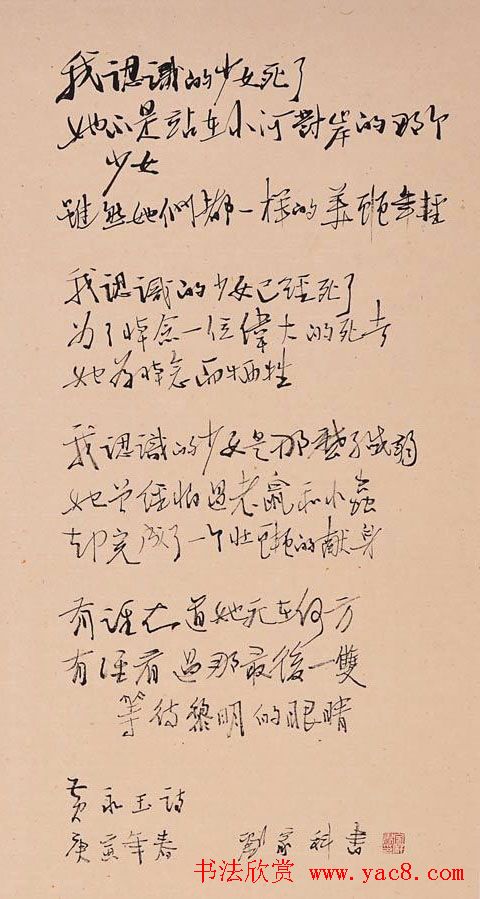 我認識的少女死了
她不是站在小河對岸的那个
少女
雖然她们都一样的美麗年輕
我認識的少女已經死了
为了悼念一位偉大的死者
她为悼念而牺牲
我認識的少女是那麽弱
她曾經怕過老鼠和小蟲
却完成了一个壮麗的献身
有誰知道她死在何方
有誰看過那最後一雙
等待黎明的眼睛
黄永玉詩
庚寅年春 劉家科書
书法欣赏 www.yac8.com